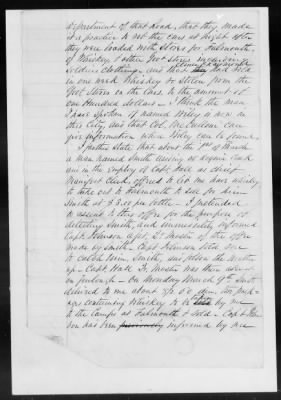 department of that Road, that they made
it a practice to rob the cars at night after
they were loaded with Stores for Falmouth,
of Whiskey & other Govt Stores including
soldiers Clothing, and that had sold
in one week Whiskey &c stolen from the
Govt Stores in the Cars, to the amount of
one Hundred dollars — I think the man
I have spoken of named Wiley is now in
this City, and that Col. can
give information where Wiley can be found.
I further State that about the 1st of March
a man named Smith
in the employ of Capt Hall as chief
Manifest Clerk, offered to let me have whiskey
to take out to Falmouth to sell for him
Smith at $3.00 per bottle — I pretended
to assent to this offer for the purpose of
detecting Smith, and immediately informed
Capt Johnson of the offer
made by Smith — Capt Johnson told me
to catch him, Smith, and follow the matter
up — Capt. Hall Qr. Master was then absent
on furlough — On Monday March 9th Smith
delivered to me about 7½ o'c pm. two pack-
ages containing Whiskey to be by me
to the Camps at Falmouth & sold — Capt John-
son has been previously informed by me